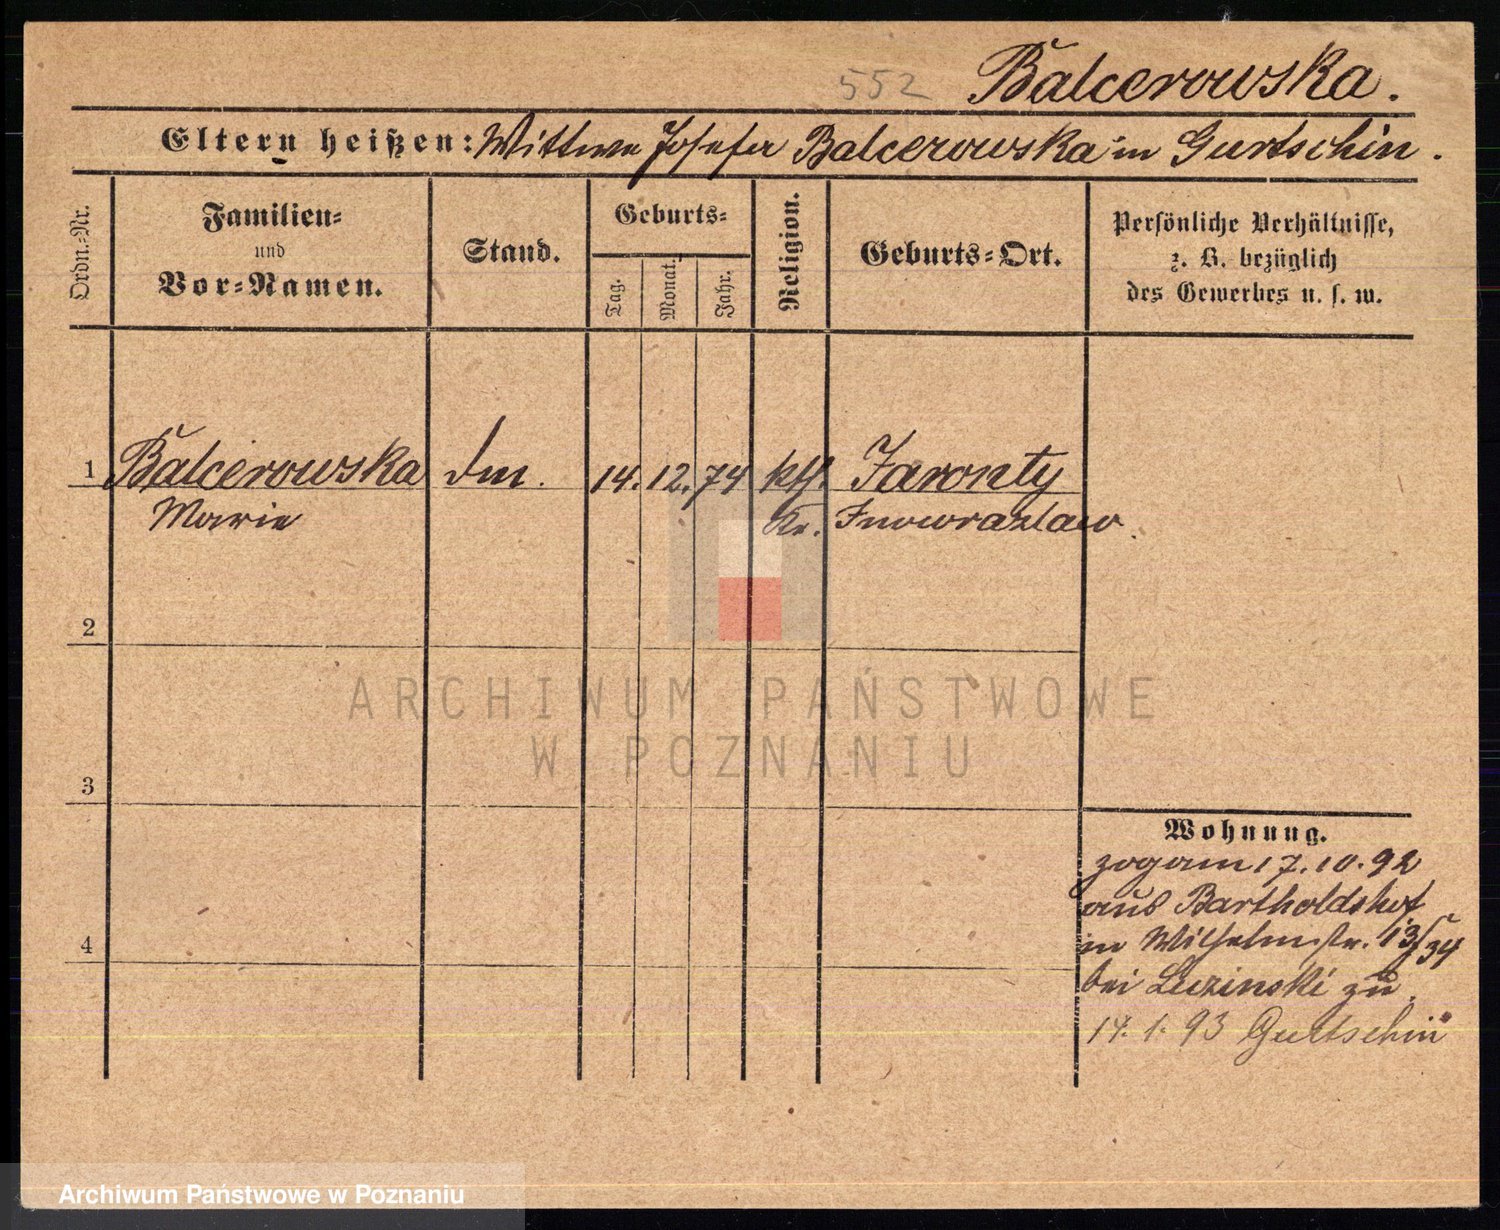 552
Balcerowska.
Eltern heißen: Wittwe Josefa Balcerowska in Gurtschin.
Ordn.-Nr.
Familien-
und
Vor-Namen.
Stand.
Geburts-
Tag.
Monat.
Jahr.
Religion.
Geburts-Ort.
Persönliche Verhältnisse,
z. B. bezüglich
des Gewerbes u. s. w.
1 Balcerowska dm. 14. 12. 74 kth. Jaronty
Marie Kr. Inowrazlaw.
2
3
4
ARCHIWUM PAŃSTWOWE
W POZNANIU
Wohnung.
zog am 17. 10. 92
aus Bartholdshof
in Wilhelmstr. 13/34
bei Luzinski zu.
14. 1. 93 Gurtschin
Archiwum Państwowe w Poznaniu